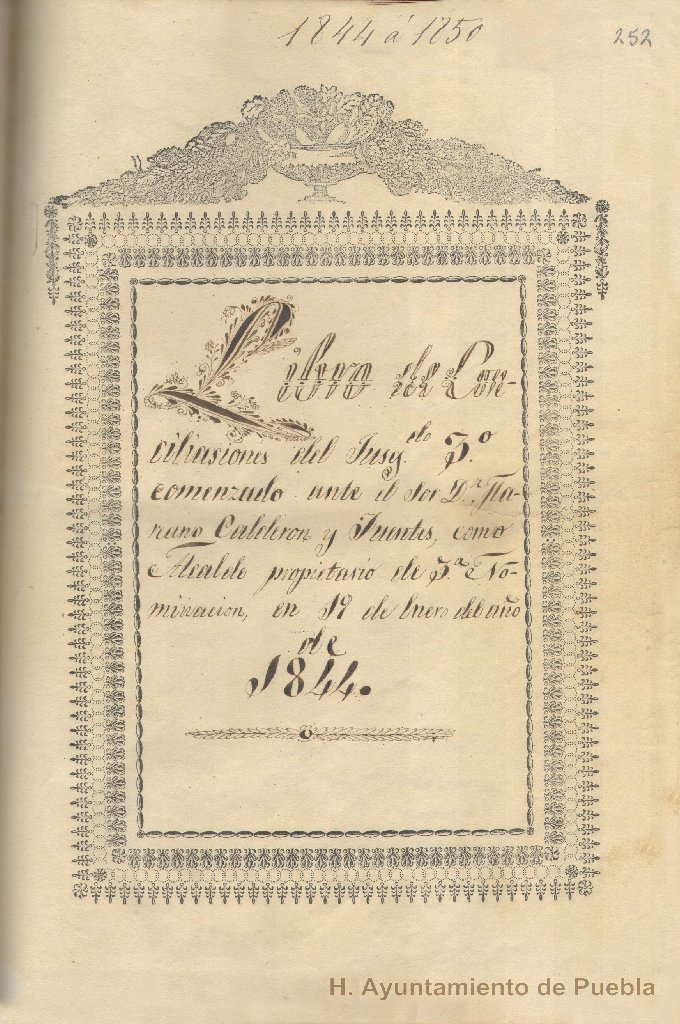 1844 á 1850
252
Libro de Con-
ciliasiones del Jusg.do 3.º
comenzado ante el Sor D.n Ma-
riano Calderon y Fuentes, como
Alcalde propietario de 3.ª No-
minacion, en 1º de Enero del año
de
1844.
H. Ayuntamiento de Puebla